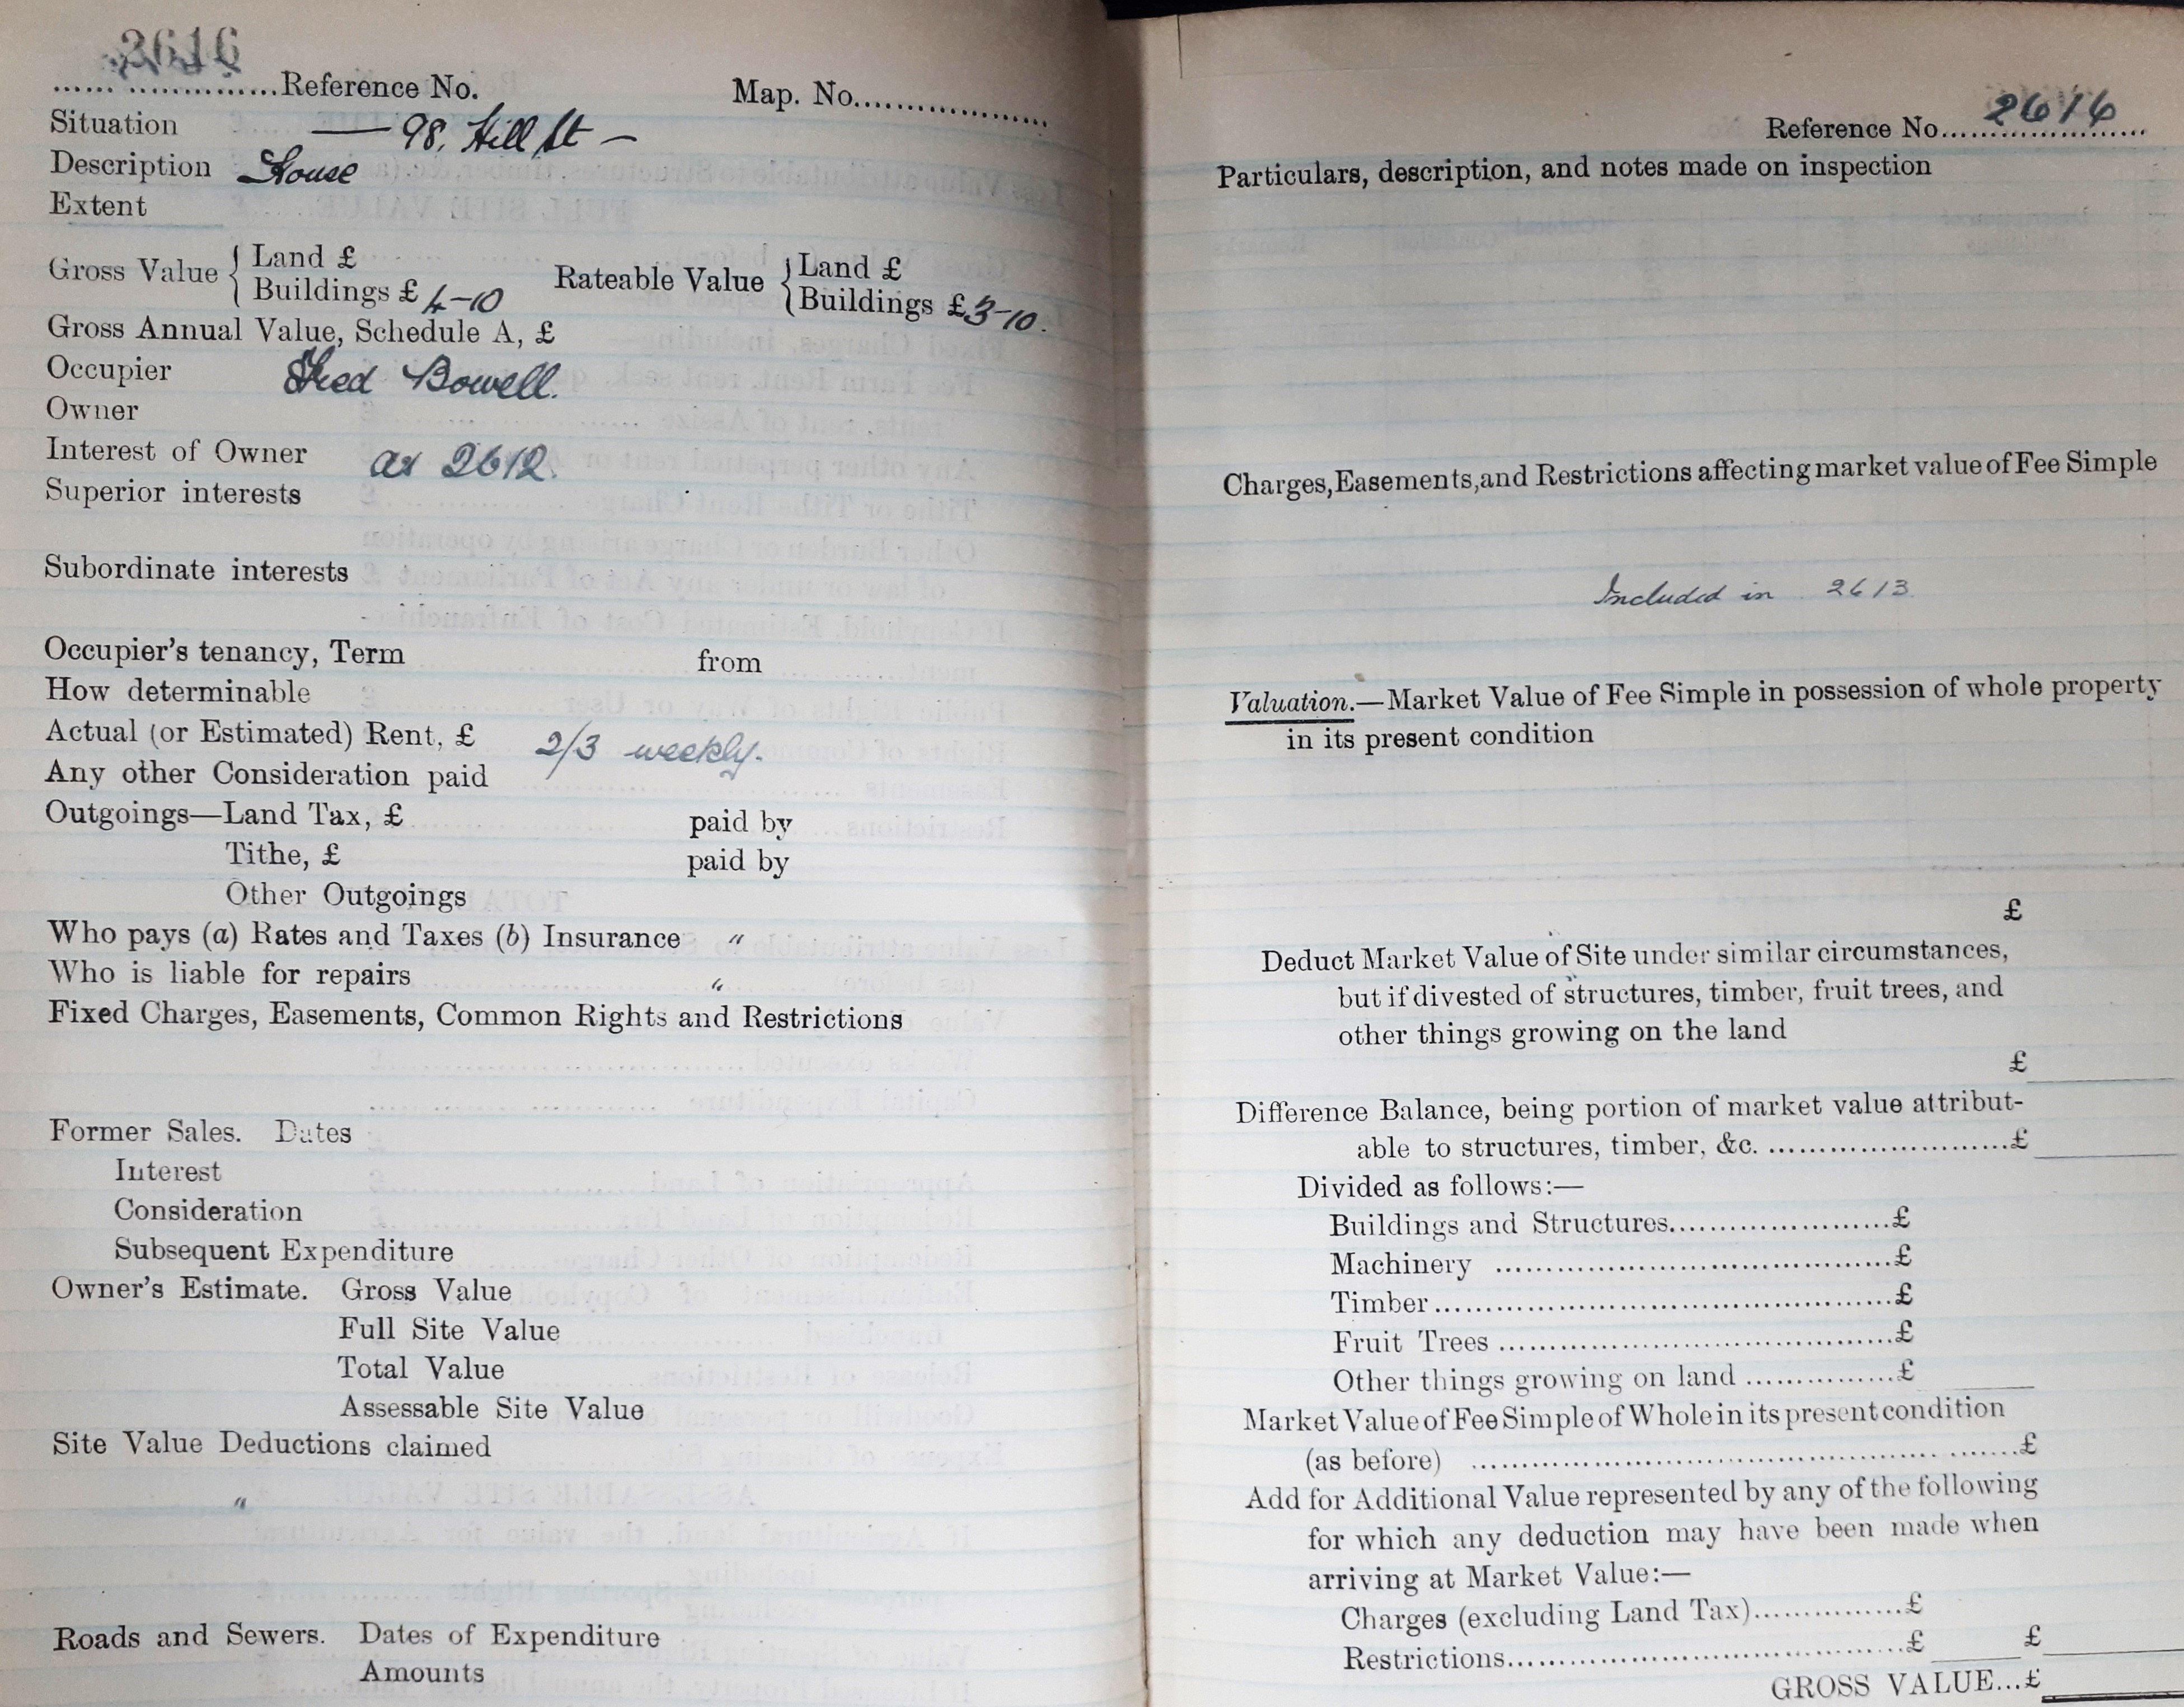 2616
..................Reference No. Map. No..................
Situation — 98, Hill St —
Description House
Extent
Gross Value { Land £
Buildings £ 4-10
Rateable Value { Land £
Buildings £3-10.
Gross Annual Value, Schedule A, £
Occupier Fred Bowell.
Owner
Interest of Owner as 2612.
Superior interests
Subordinate interests
Occupier's tenancy, Term from
How determinable
Actual (or Estimated) Rent, £ 2/3 weekly.
Any other Consideration paid
Outgoings—Land Tax, £ paid by
Tithe, £ paid by
Other Outgoings
Who pays (a) Rates and Taxes (b) Insurance "
Who is liable for repairs "
Fixed Charges, Easements, Common Rights and Restrictions
Former Sales. Dates
Interest
Consideration
Subsequent Expenditure
Owner's Estimate. Gross Value
Full Site Value
Total Value
Assessable Site Value
Site Value Deductions claimed
"
Roads and Sewers. Dates of Expenditure
Amounts
Reference No. 2616
Particulars, description, and notes made on inspection
Charges, Easements, and Restrictions affecting market value of Fee Simple
Included in 2613.
Valuation.—Market Value of Fee Simple in possession of whole property
in its present condition
£
Deduct Market Value of Site under similar circumstances,
but if divested of structures, timber, fruit trees, and
other things growing on the land
£
Difference Balance, being portion of market value attribut-
able to structures, timber, &c. ............................£
Divided as follows:—
Buildings and Structures......................£
Machinery ......................................£
Timber............................................£
Fruit Trees .....................................£
Other things growing on land ...............£
Market Value of Fee Simple of Whole in its present condition
(as before) .....................................................£
Add for Additional Value represented by any of the following
for which any deduction may have been made when
arriving at Market Value:—
Charges (excluding Land Tax)...............£
Restrictions......................................£ £
GROSS VALUE...£